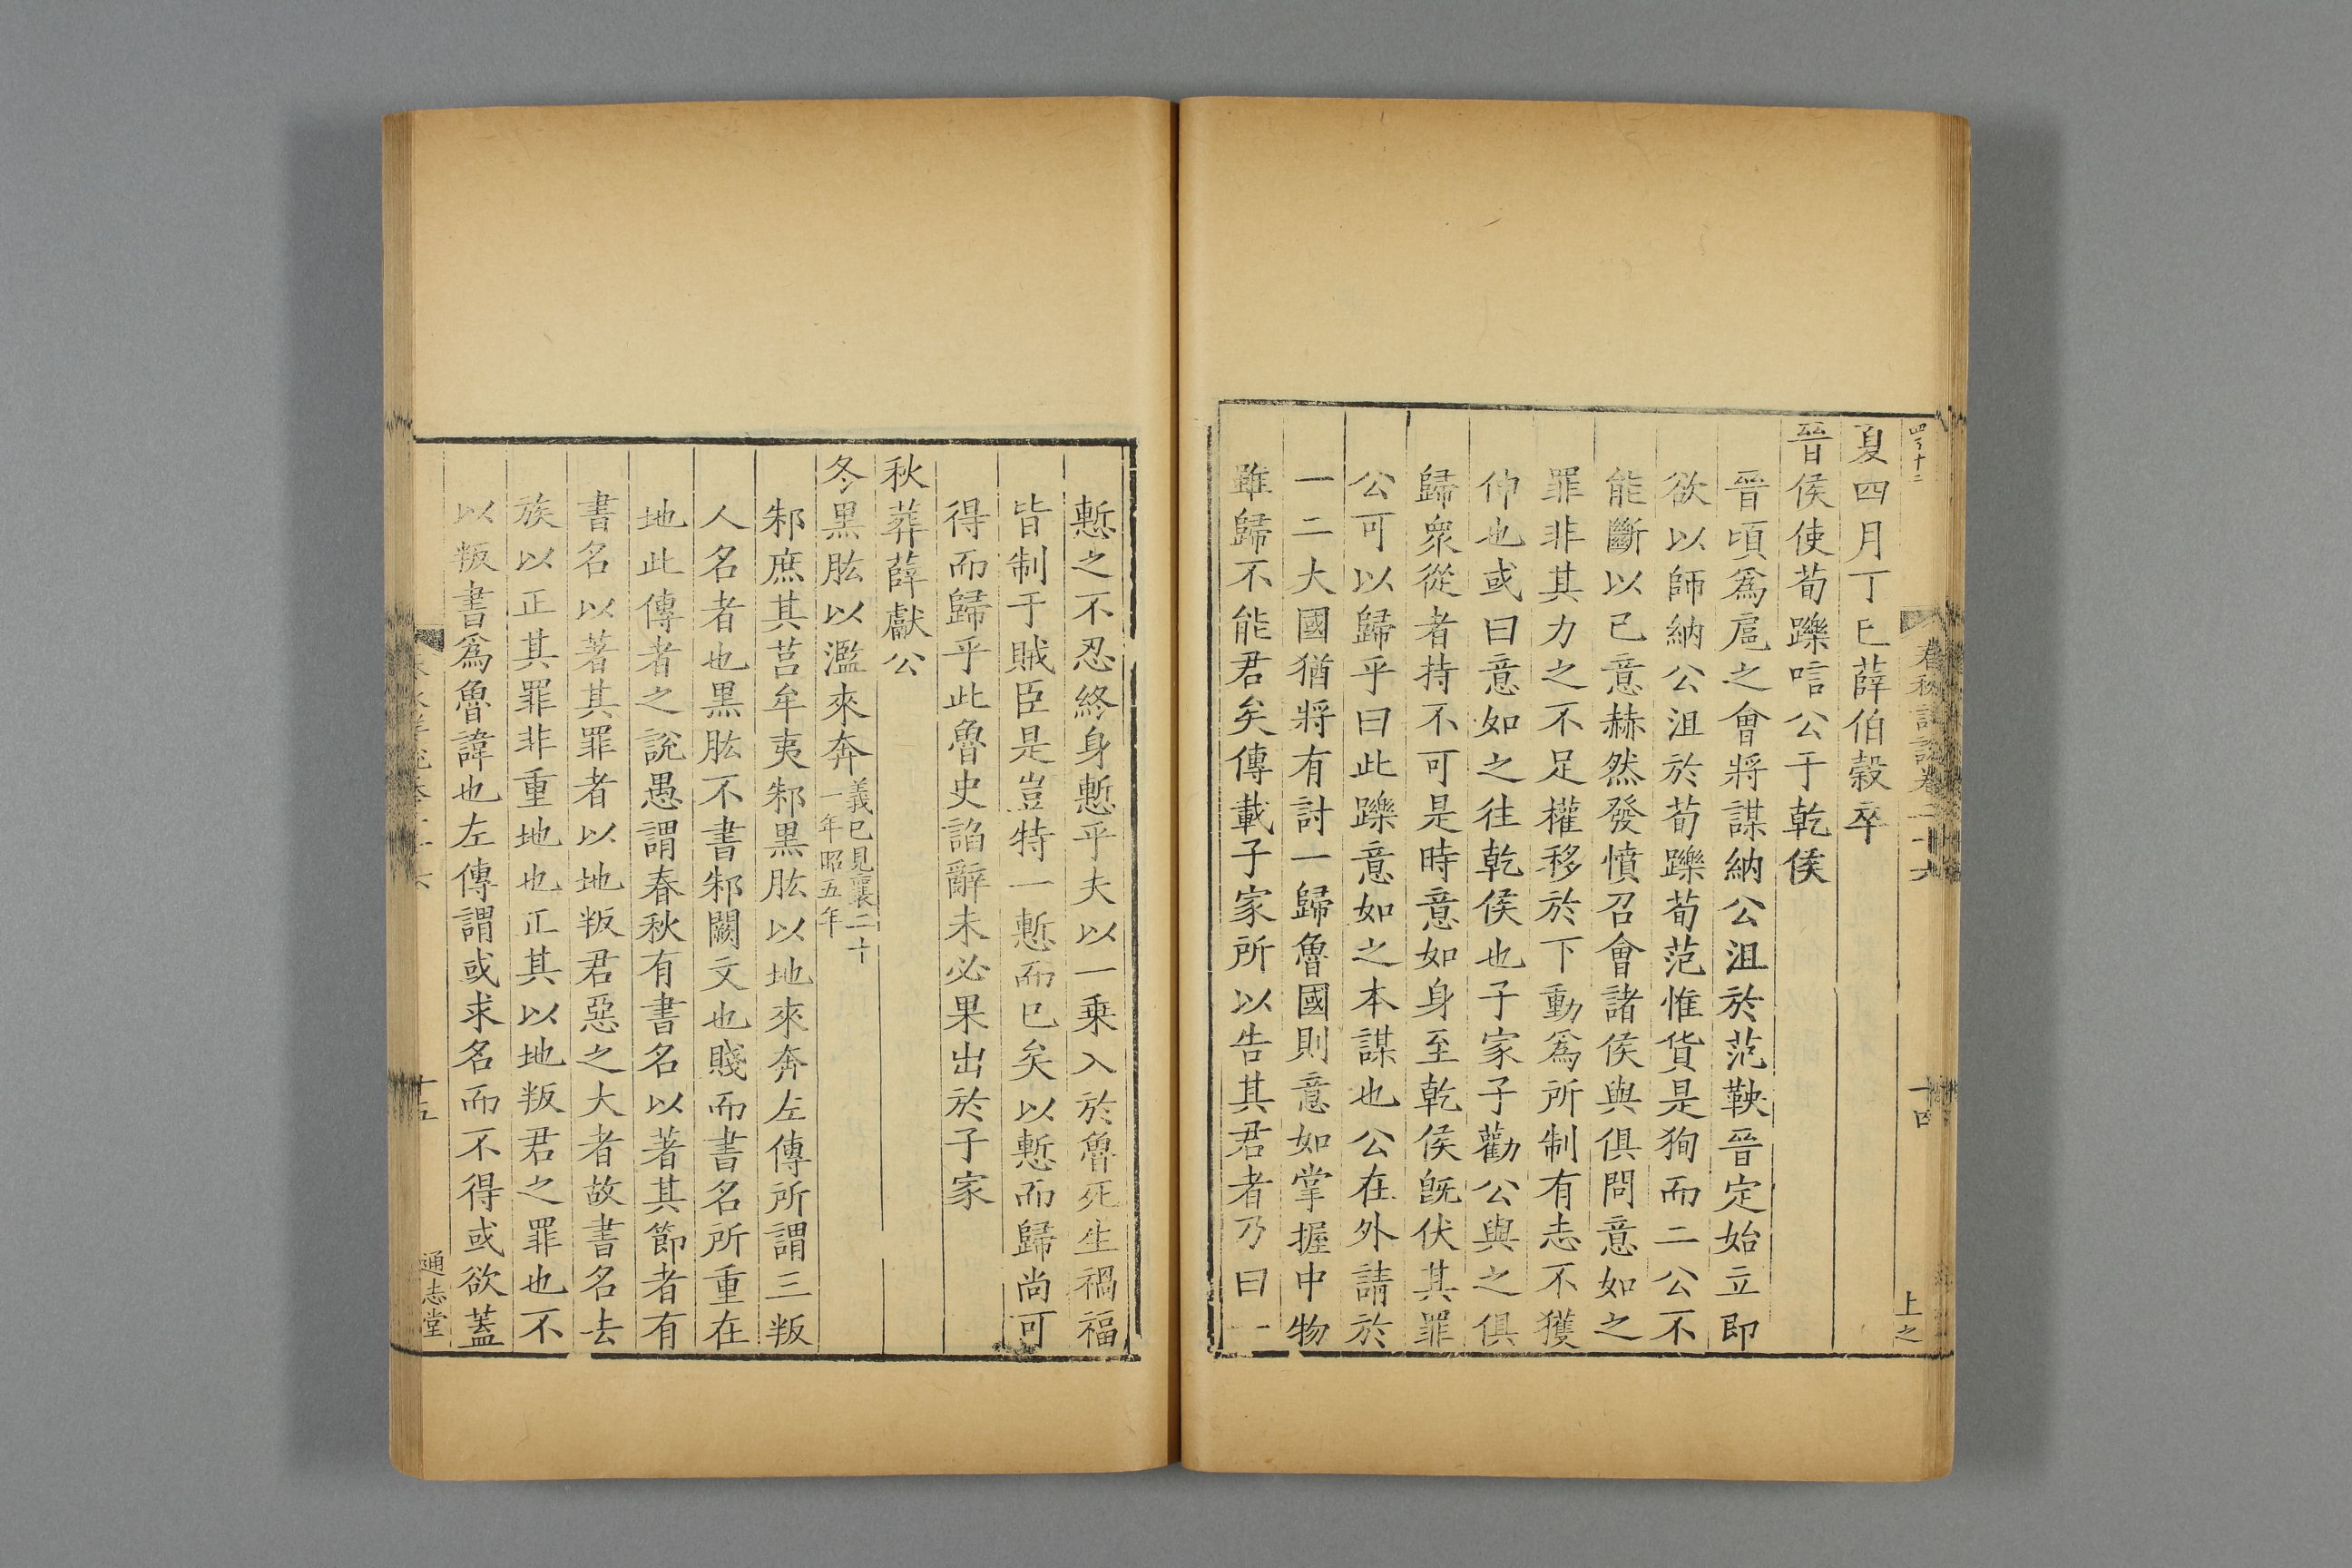 夏四月丁巳薛伯榖卒
晉侯使荀躒唁公于乾侯
晉頃爲扈之會將謀納公沮於范鞅晉定始立即
欲以師納公沮於荀躒荀范惟貨是狥而二公不
能斷以已意赫然發憤召會諸侯與俱問意如之
罪非其力之不足權移於下動爲所制有志不獲
伸也或曰意如之往乾侯也子家子勸公與之俱
歸衆從者持不可是時意如身至乾侯旣伏其罪
公可以歸乎曰此躒意如之本謀也公在外請於
一二大國猶將有討一歸魯國則意如掌握中物
雖歸不能君矣傳載子家所以告其君者乃曰一
慙之不忍終身慙乎夫以一乗入於魯死生禍福
皆制于賊臣是豈特一慙而已矣以慙而歸尚可
得而歸乎此魯史諂辭未必果出於子家
秋葬薛獻公
冬黒肱以濫來奔義已見襄二十
一年昭五年
邾庶其莒牟夷邾黒肱以地來奔左傳所謂三叛
人名者也黒肱不書邾闕文也賤而書名所重在
地此傳者之說愚謂春秋有書名以著其節者有
書名以著其罪者以地叛君惡之大者故書名去
族以正其罪非重地也正其以地叛君之罪也不
以叛書爲魯諱也左傳謂或求名而不得或欲蓋
春秋詳說卷二十六
十四
上之
十五
通志堂